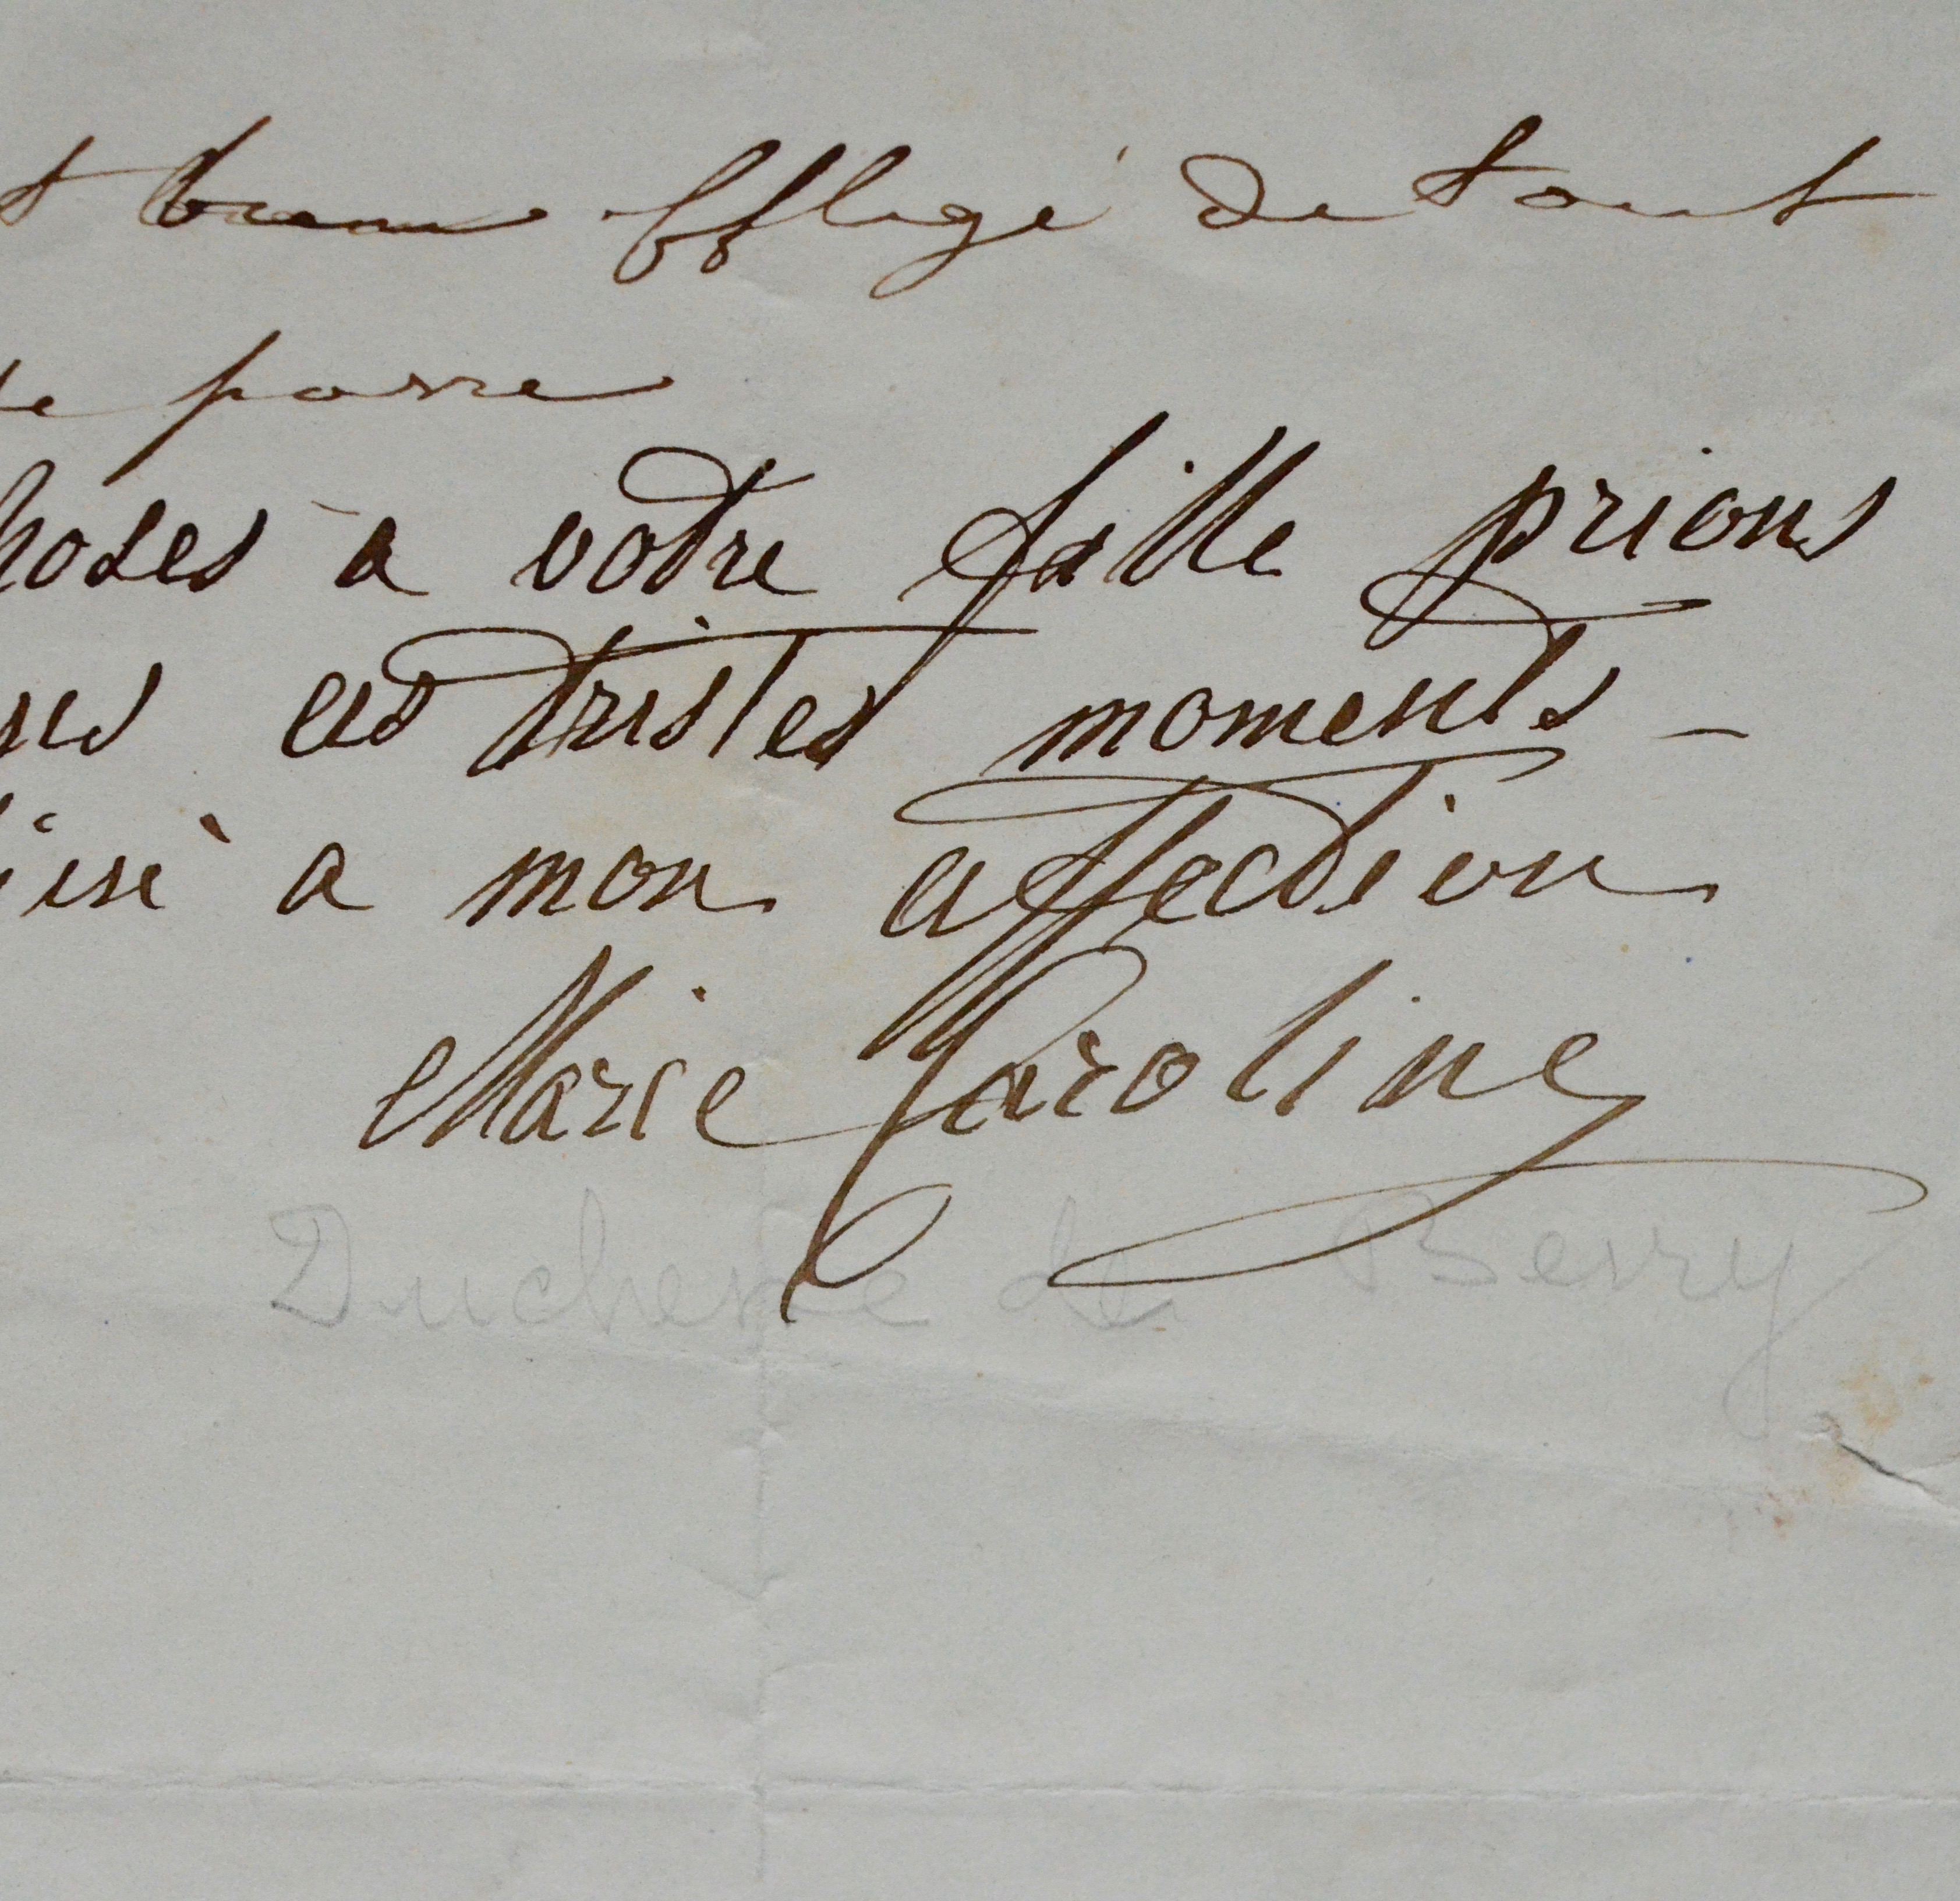 t bien afflige' de tout
se passe
hoses à votre fille prions
ces tristes moments -
a mon affection
Marie Caroline
Duchesse de Berry